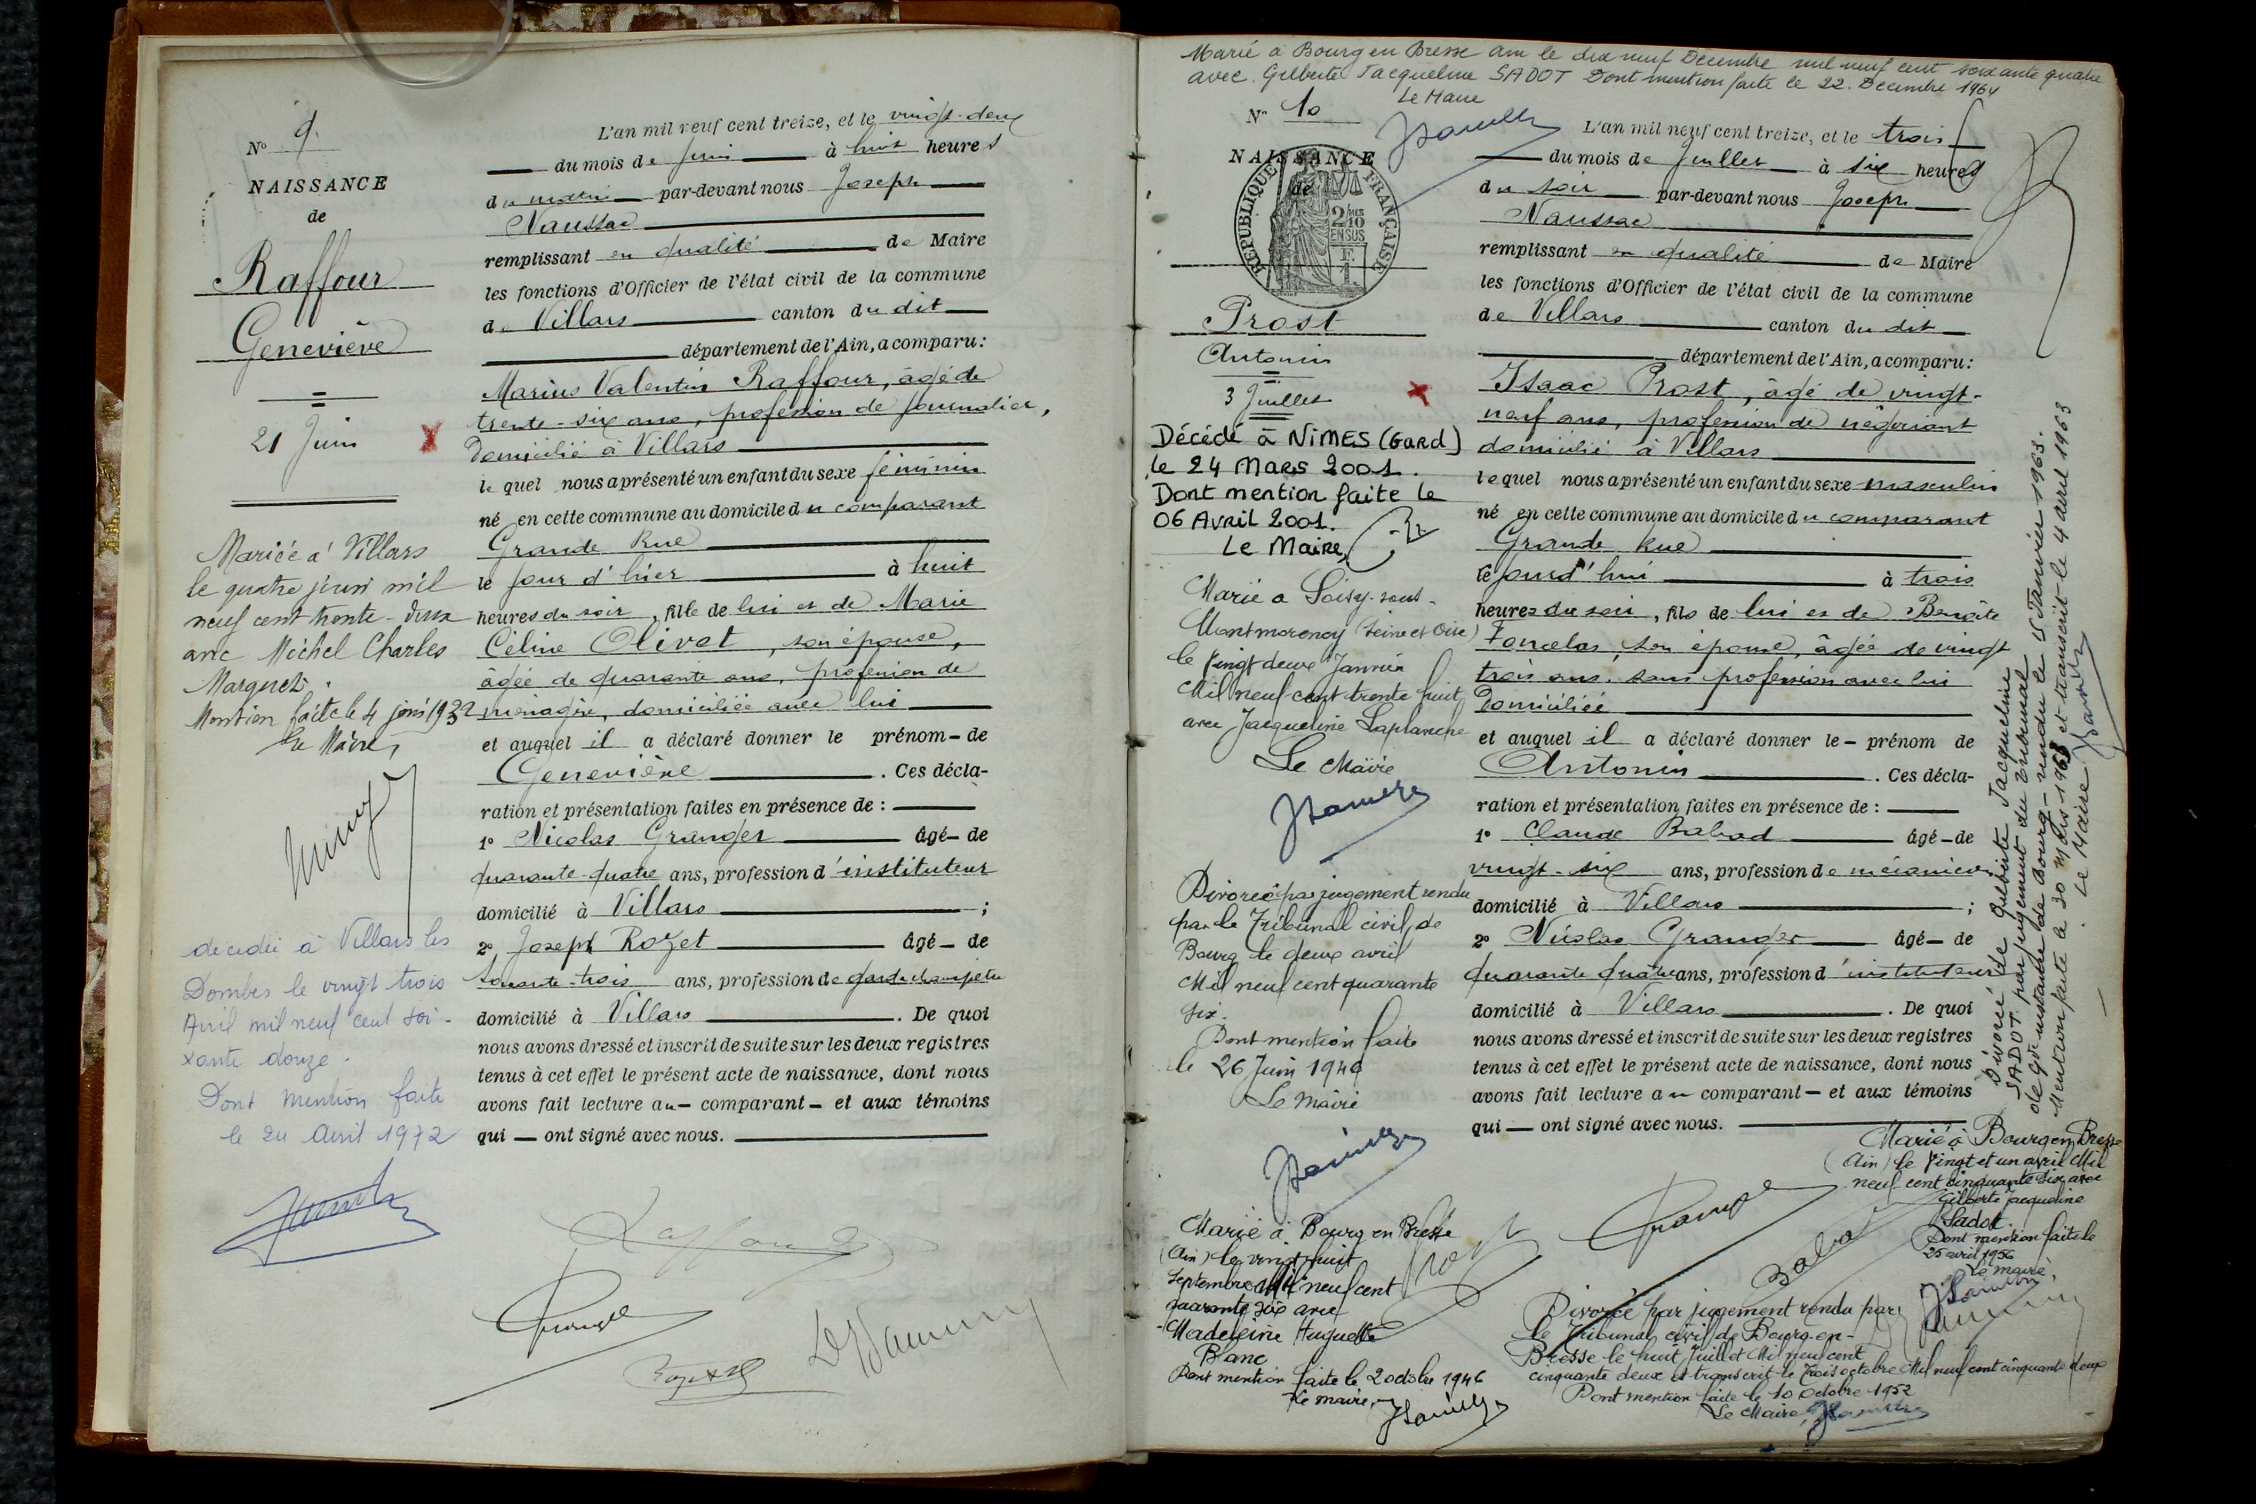 N° 9.
NAISSANCE
de
Raffour
Geneviève
21 Juin
Mariée à Villars
le quatre juin mil
neuf cent trente-deux
avec Michel Charles
Marguet.
Mention faite le 4 juin 1932
Le Maire,
décédée à Villars les
Dombes le vingt trois
Avril mil neuf cent soi-
xante douze.
Dont mention faite
le 24 Avril 1972
L'an mil neuf cent treize, et le vingt-deux
du mois de Juin à huit heures
du matin par-devant nous Joseph
Naussac
remplissant en qualité de Maire
les fonctions d'Officier de l'état civil de la commune
de Villars canton du dit
département de l'Ain, a comparu:
Marius Valentin Raffour, âgé de
trente-six ans, profession de journalier,
domicilié à Villars
lequel nous a présenté un enfant du sexe féminin
né en cette commune au domicile du comparant
Grande Rue
le jour d'hier à huit
heures du soir, fille de lui et de Marie
Céline Olivet, son épouse,
âgée de quarante ans, profession de
ménagère, domiciliée avec lui
et auquel il a déclaré donner le prénom de
Geneviève. Ces décla-
ration et présentation faites en présence de :
1° Nicolas Granger âgé de
quarante-quatre ans, profession d'instituteur
domicilié à Villars ;
2° Joseph Rozet âgé de
soixante-trois ans, profession de garde champêtre
domicilié à Villars. De quoi
nous avons dressé et inscrit de suite sur les deux registres
tenus à cet effet le présent acte de naissance, dont nous
avons fait lecture au comparant et aux témoins
qui ont signé avec nous.
Raffour
Granger
Marié à Bourg en Bresse Ain le dix neuf Décembre mil neuf cent soixante quatre
avec Gilberte Jacqueline SADOT Dont mention faite le 22 Décembre 1964
Le Maire
N° 10
NAISSANCE
de
RÉPUBLIQUE FRANÇAISE
2/10 EN SUS
Prost
Antonin
3 Juillet
Décédé à NîMES (Gard)
le 24 Mars 2001.
Dont mention faite le
06 Avril 2001.
Le Maire,
Marié à Soisy-sous-
Montmorency (Seine et Oise)
le vingt deux Janvier
Mil neuf cent trente huit
avec Jacqueline Laplanche
Le Maire
Divorcé par jugement rendu
par le Tribunal civil de
Bourg le deux avril
Mil neuf cent quarante
six.
Dont mention faite
le 26 Juin 1946
Le maire
Marié à Bourg en Bresse
(Ain) le vingt huit
Septembre Mil neuf cent
quarante six avec
Madeleine Huguette
Blanc
Dont mention faite le 2 octobre 1946
Le maire,
L'an mil neuf cent treize, et le trois
du mois de Juillet à six heures
du soir par-devant nous Joseph
Naussac
remplissant en qualité de Maire
les fonctions d'Officier de l'état civil de la commune
de Villars canton du dit
département de l'Ain, a comparu:
Isaac Prost, âgé de vingt-
neuf ans, profession de négociant
domicilié à Villars
lequel nous a présenté un enfant du sexe masculin
né en cette commune au domicile du comparant
Grande Rue
le jourd'hui à trois
heures du soir, fils de lui et de Benoîte
son épouse, âgée de vingt
trois ans, sans profession avec lui
domiciliée
et auquel il a déclaré donner le prénom de
Antonin. Ces décla-
ration et présentation faites en présence de :
1° Claude Babad âgé de
vingt-six ans, profession de mécanicien
domicilié à Villars ;
2° Nicolas Granger âgé de
quarante quatre ans, profession d'instituteur
domicilié à Villars. De quoi
nous avons dressé et inscrit de suite sur les deux registres
tenus à cet effet le présent acte de naissance, dont nous
avons fait lecture au comparant et aux témoins
qui ont signé avec nous.
Prost
Granger
Babad
Marié à Bourg en Bresse
(Ain) le vingt et un avril Mil
neuf cent cinquante six avec
Gilberte Jacqueline
Sadot.
Dont mention faite le
25 avril 1956
Le maire,
Divorcé par jugement rendu par
le Tribunal civil de Bourg-en-
Bresse le huit Juillet Mil neuf cent
cinquante deux et transcrit le trois octobre Mil neuf cent cinquante deux
Dont mention faite le 10 octobre 1952
Le Maire,
Divorcé de Gilberte Jacqueline
SADOT par jugement du tribunal
de gde instance de Bourg rendu le 15 Janvier 1963.
Mention faite le 30 Mars 1965 et transcrit le 4 avril 1963
Le Maire